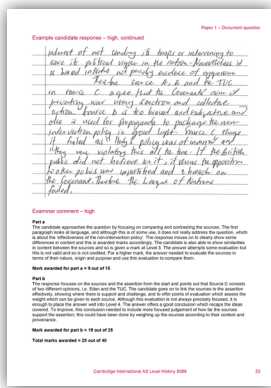 Paper 1 – Document question
Example candidate response – high, continued
interest of not sending its troops or intervening to
save its political vigour in the nation. Nevertheless it
is biased
evidence of
Source A, B and the TUC
in source C agree that the Covenants' aim of
preventing war using sanctions and collective
action. Source B is too biased and subjective and
also is used for propaganda to
non-
intervention policy in good light. Source C
it failed as
and
"they were violating
all the time". If the British
public did not believe in it,
the opposition
to other
was
and a breach on
the Covenant. Therefore the League of Nations
failed.
Examiner comment – high
Part a
The candidate approaches the question by focusing on comparing and contrasting the sources. The first
paragraph looks at language, and although this is of some use, it does not really address the question, which
is about the 'effectiveness of the non-intervention policy'. The response moves on to clearly show some
differences in content and this is awarded marks accordingly. The candidate is also able to show similarities
in content between the sources and so is given a mark at Level 3. The answer attempts some evaluation but
this is not valid and so is not credited. For a higher mark, the answer needed to evaluate the sources in
terms of their nature, origin and purpose and use this evaluation to compare them.
Mark awarded for part a = 9 out of 15
Part b
The response focuses on the sources and the assertion from the start and points out that Source C consists
of two different opinions, i.e. Eden and the TUC. The candidate goes on to link the sources to the assertion
effectively, showing where there is support and challenge, and to offer points of evaluation which assess the
weight which can be given to each source. Although this evaluation is not always precisely focused, it is
enough to place the answer well into Level 4. The answer offers a good conclusion which recaps the ideas
covered. To improve, this conclusion needed to include more focused judgement of how far the sources
support the assertion; this could have been done by weighing up the sources according to their content and
provenance.
Mark awarded for part b = 19 out of 25
Total marks awarded = 28 out of 40
Cambridge International AS Level History 9389
53